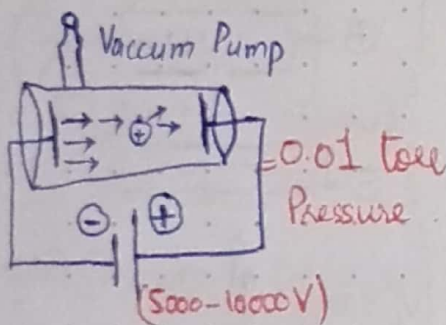 Vaccum Pump
⊕
= 0.01 torr
Pressure
⊖ ⊕
(5000-10000V)